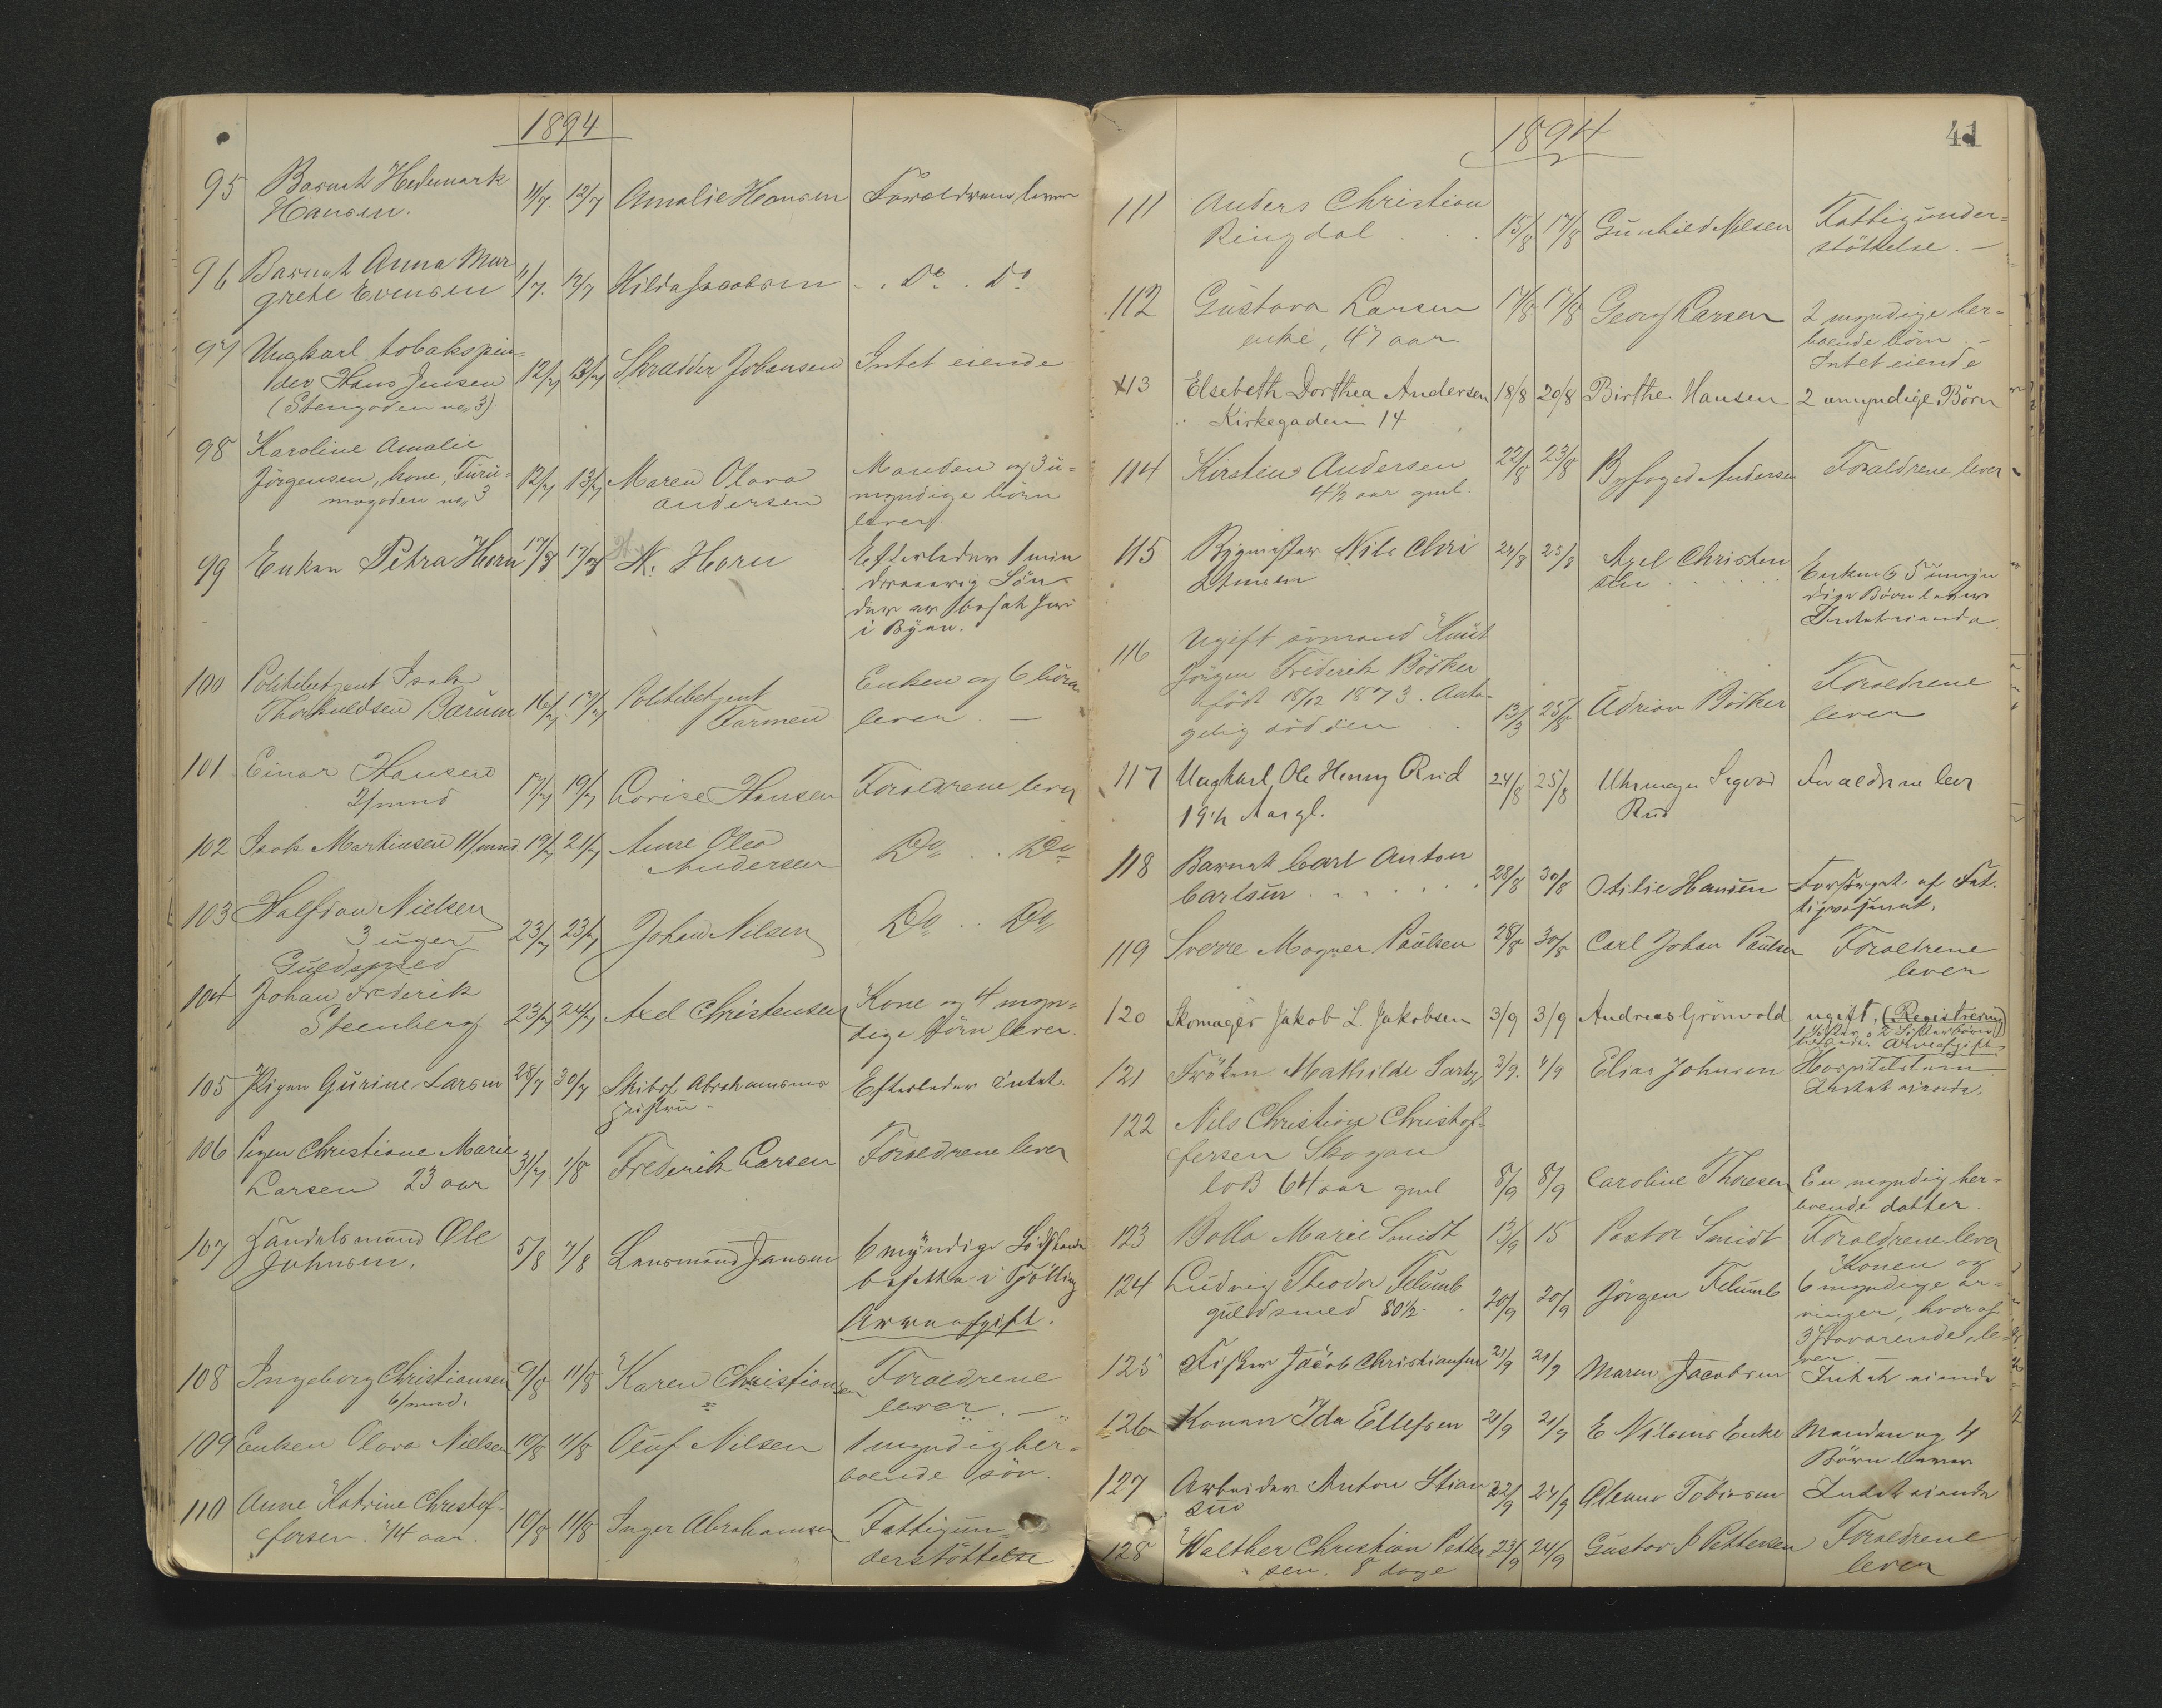 1894
95 Barnet Hedemark
Hansen. 11/7. 12/7 Amalie Hansen Forældrene lever
96 Barnet Anna Mar
grethe Evensen 11/7. 12/7 Hilda Jacobsen . . Do . Do
97 Ungkarl tobakspin-
der Hans Jensen 12/7 13/7 Skrædder Johansen Intet eiende
(Stengaden no 3)
98 Karoline Amalie
Jörgensen, kone, Furu-
mogaden no 3 12/7 13/7 Maren Olava
Andersen Manden og 3 u-
myndige börn
lever
99 Enken Petra Horn 17/7 17/7 N. Horn Efterlader 1 min
dreaarig Sön
der er bosat her
i Byen.
100 Politibetjent Isak
Thorkildsen Bærum 16/7 17/7 Politibetjent
Farmen Enken og 6 börn
lever —
101 Einar Hansen
2/mnd 17/7 19/7 Lovise Hansen Forældrene lever
102 Isak Martinsen 11/mnd. 19/7 21/7 Anne Olea
Andersen Do . . Do
103 Halfdan Nielsen
3 uger 23/7 23/7 Johan Nilsen Do . . Do
104 Guldsmed
Johan Frederik
Steenberg 23/7 24/7 Axel Christensen Kone og 4 myn-
dige börn lever.
105 Pigen Gurine Larsen 28/7 30/7 Skibsf. Abrahamsens
Hustru Efterlader intet.
106 Pigen Christiane Marie
Larsen 23 aar 31/7 1/8 Frederik Larsen Forældrene lever
107 Handelsmand Ole
Johnsen. 5/8 7/8 Lensmand Jansen 6 myndige Södskende
bosatte i Tjölling
Arveafgift.
108 Ingeborg Christiansen
6/mnd. 9/8 11/8 Karen Christiansen Forældrene
lever. —
109 Enken Olava Nielsen 10/8 11/8 Oluf Nilsen 1 myndig her-
boende sön.
110 Anne Katrine Christof-
fersen. 74 aar. 10/8 11/8 Inger Abrahamsen Fattigun-
derstöttelse
1894 41
111 Anders Christian
Ringdal . . . 15/8 17/8 Gunhild Nilsen Fattigunder-
stöttelse. —
112 Gustava Larsen
enke, 47 aar 17/8 17/8 Georg Larsen 2 myndige her-
boende börn. —
Intet eiende
113 Elsebeth Dorthea Andersen 18/8 20/8 Birthe Hansen 2 umyndige Börn
Kirkegaden 14
114 Kirstine Andersen
4½ aar gml. 22/8 23/8 Byfoged Andersen Forældrene lever
115 Bygmester Nils Chri
stensen 24/8 25/8 Axel Christen
sen Enken & 5 umyn
dige Börn lever
Intet eiende
116 Ugift sömand Knut
Jörgen Frederik Bödker
född 18/12 1873. Anta-
gelig död den . 13/3 25/8 Adrian Bödker Forældrene
lever
117 Ungkarl Ole Henry Rud
19½ Aar gl. 24/8 25/8 Uhrmager Sigvard
Rud Forældrene lever
118 Barnet Carl Anton
Carlsen . . . . . . 28/8 30/8 Otilie Hansen Forsörget af Fat-
tigvæsenet.
119 Sverre Magner Paulsen 28/8 30/8 Carl Johan Paulsen Forældrene
lever
120 Skomager Jakob L. Jakobsen 3/9 3/9 Andreas Grönvold ugift, (Registrering)
1 Söster & 2 Sösterbörn
Arveafgift
121 Fröken Mathilde Sartz 3/9. 4/9 Elias Johnsen Hospitalslem
Intet eiende.
122 Nils Christian Christof-
fersen Skogan
lods 64 aar gml 8/9 8/9 Caroline Thoresen En myndig her-
boende datter.
123 Bolla Marie Smidt 13/9 15 Pastor Smidt Forældrene lever
124 Ludvig Theodor Flumb
guldsmed 80½. . 20/9 20/9 Jörgen Flumb Konen og
6 myndige ar-
vinger, hvoraf
3 fraværende, le-
ver
125 Fisker Jacob Christiansen 21/9 21/9 Maren Jacobsen Intet eiende
126 Konen Ida Ellefsen 21/9 21/9 E Nilsens Enke Manden og 4
Börn lever
127 Arbeider Anton Stian
sen 22/9 24/9 Oleane Tobiasen Intet eiende
128 Walther Christian Petter
sen. 8 dage 23/9 24/9 Gustav P Pettersen Forældrene
lever